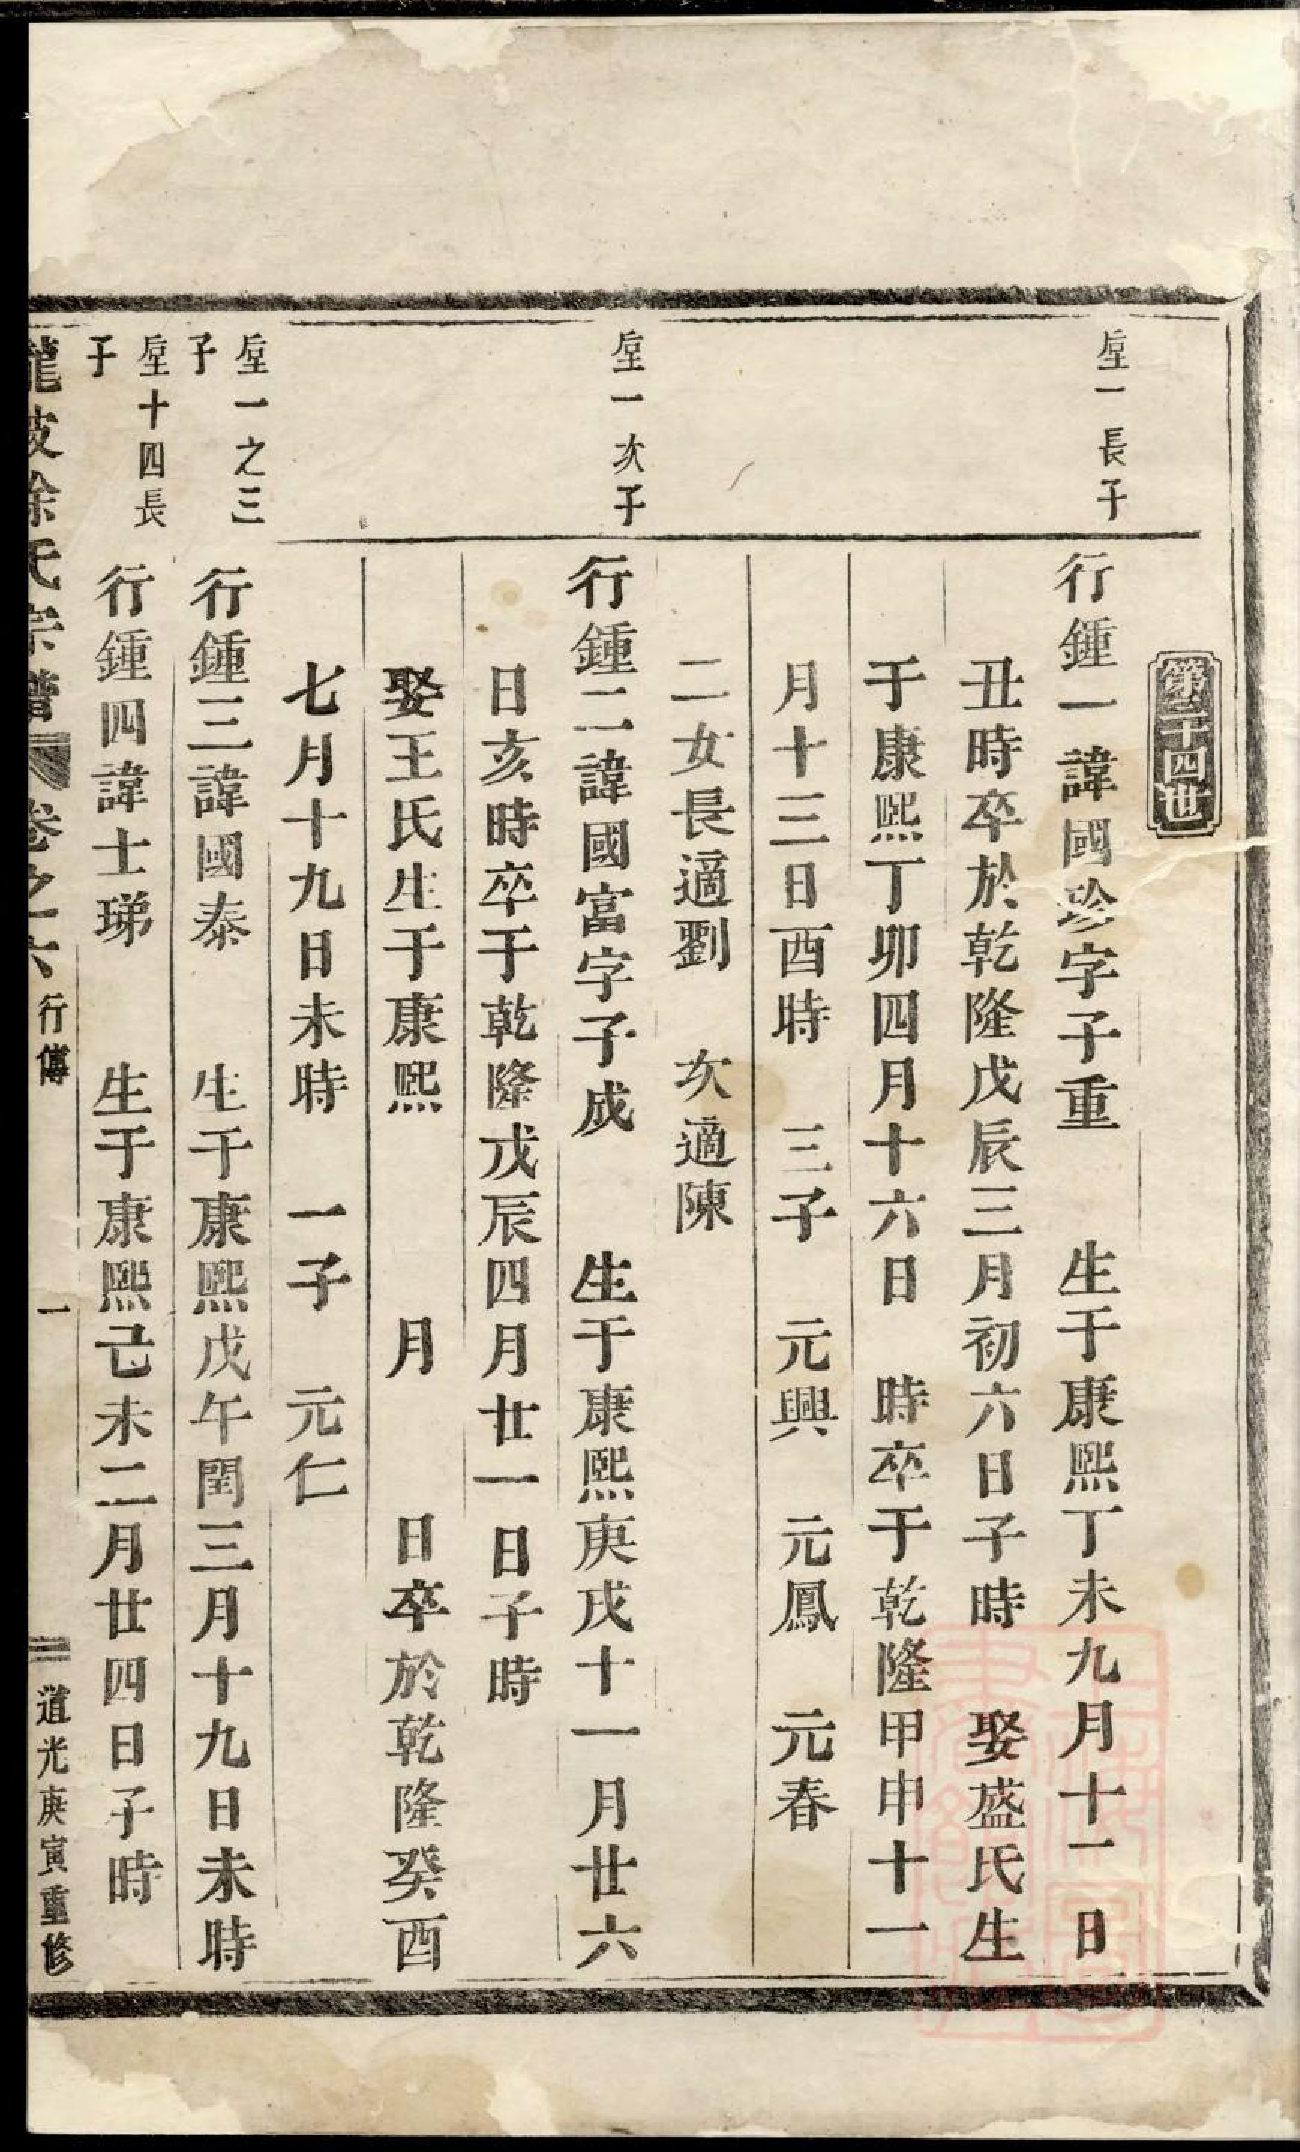 第二十四世
垕一長子
行鍾一諱國珍字子重　生于康熙丁未九月十一日
丑時卒於乾隆戊辰三月初六日子時　娶盛氏生
于康熙丁卯四月十六日　時卒于乾隆甲申十一
月十三日酉時　三子　元興　元鳳　元春
二女長適劉　次適陳
垕一次子
行鍾二諱國富字子成　生于康熙庚戌十一月廿六
日亥時卒于乾隆戊辰四月廿一日子時
娶王氏生于康熙　月　日卒於乾隆癸酉
七月十九日未時　一子　元仁
垕一之三
子
行鍾三諱國泰　生于康熙戊午閏三月十九日未時
垕十四長
子
行鍾四諱士琊　生于康熙己未二月廿四日子時
龍坡徐氏宗譜　卷之六　行傳　一　道光庚寅重修